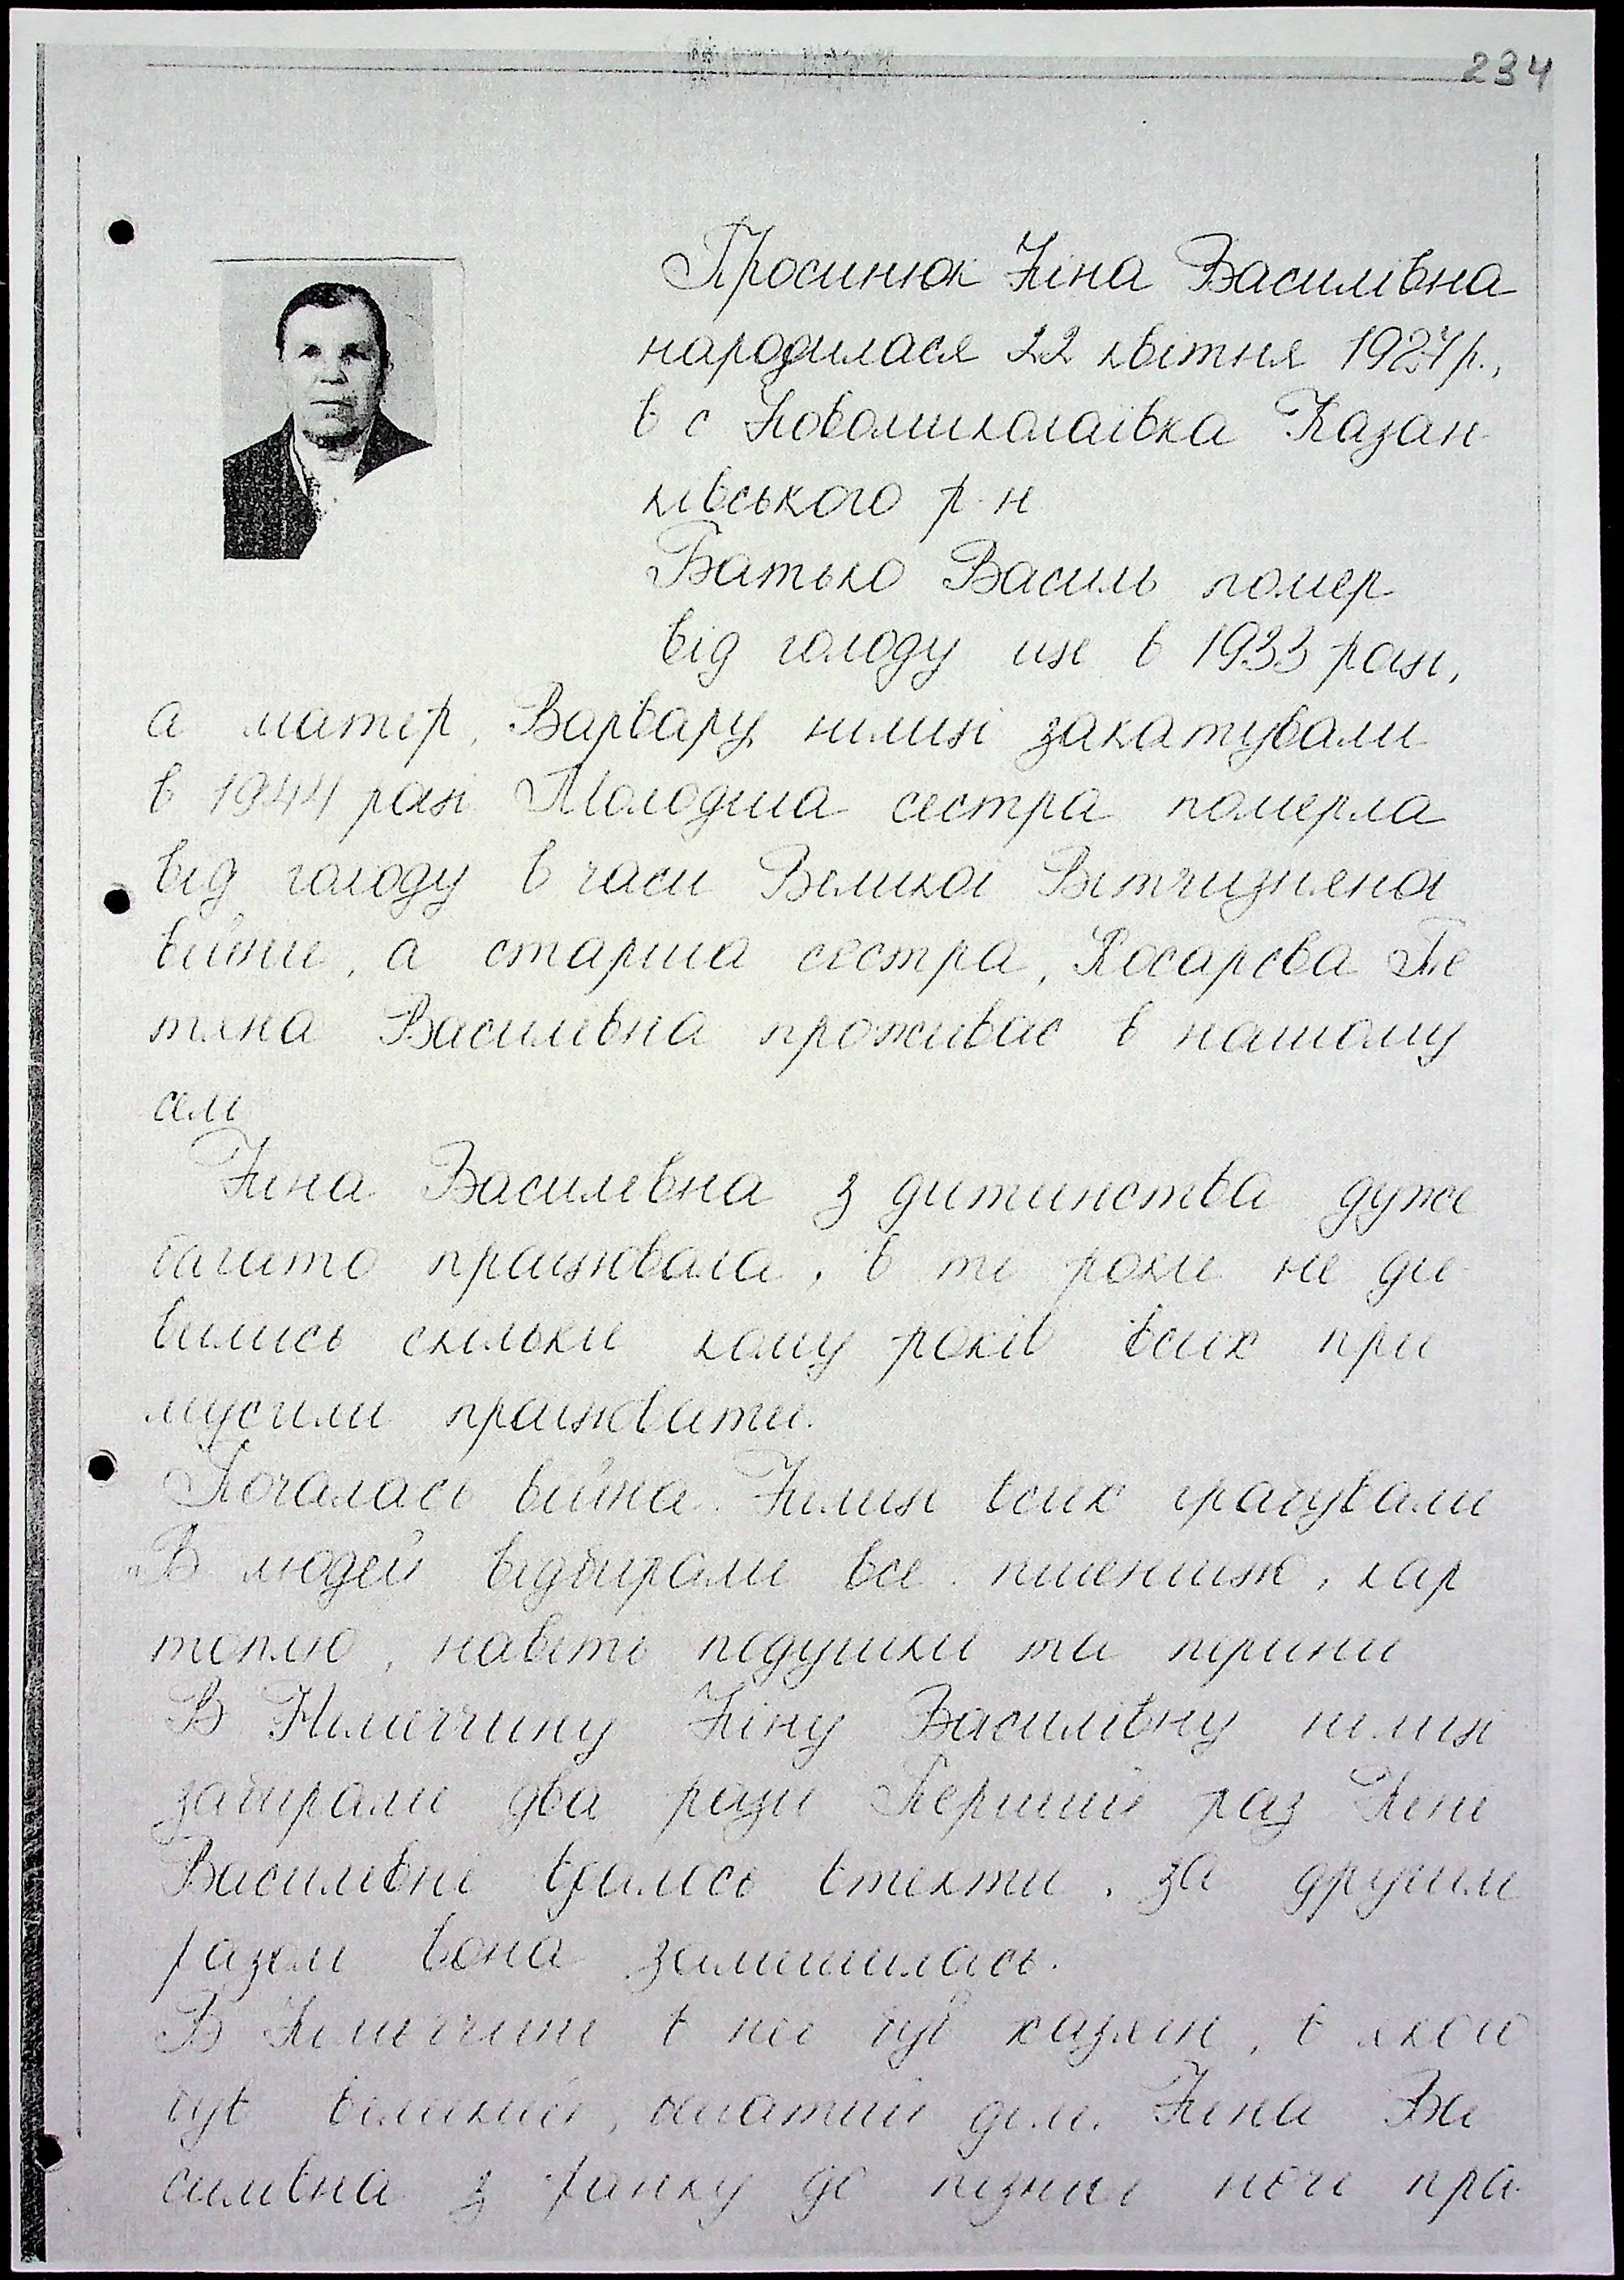 234
Просинюк Ніна Василівна
народилася 22 квітня 1927р.,
в с Новомиколаївка Казан
ківського р-н
Батько Василь помер
від голоду ще в 1933 році,
а матір, Варвару німці закатували
в 1944 році Молодша сестра померла
від голоду в часи Великої Вітчизняної
війни, а старша сестра, Косарєва Те
тяна Василівна проживає в нашому
селі
Ніна Василівна з дитинства дуже
багато працювала, в ті роки не ди
вились скільки кому років всіх при
мусили працювати.
Почалась війна. Німці всіх грабували
В людей відбирали все пшеницю, кар
топлю, навіть подушки та перини
В Німеччину Ніну Василівну німці
забирали два рази Перший раз Ніні
Василівні вдалось втекти, за другим
разом вона залишилась.
В Німеччині в неї був хазяїн, в якого
був великий, багатий дім. Ніна Ва
силівна з ранку до пізньої ночі пра-